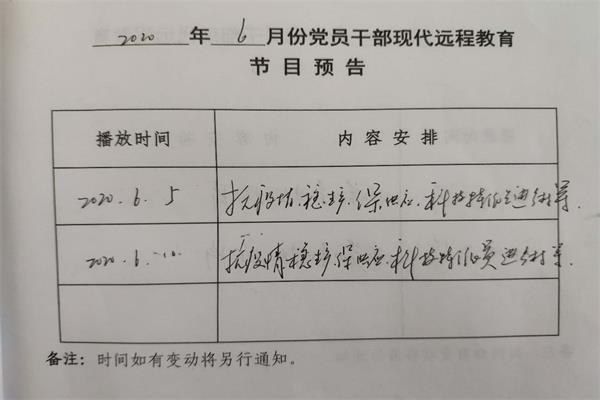 2020 年 6 月份党员干部现代远程教育
节目预告
播放时间 内容安排
2020.6.5 抗疫情.稳产.保供应.科技特派员进行等.
2020.6.10 抗疫情稳产保供应.科技特派员进行等.
备注：时间如有变动将另行通知。